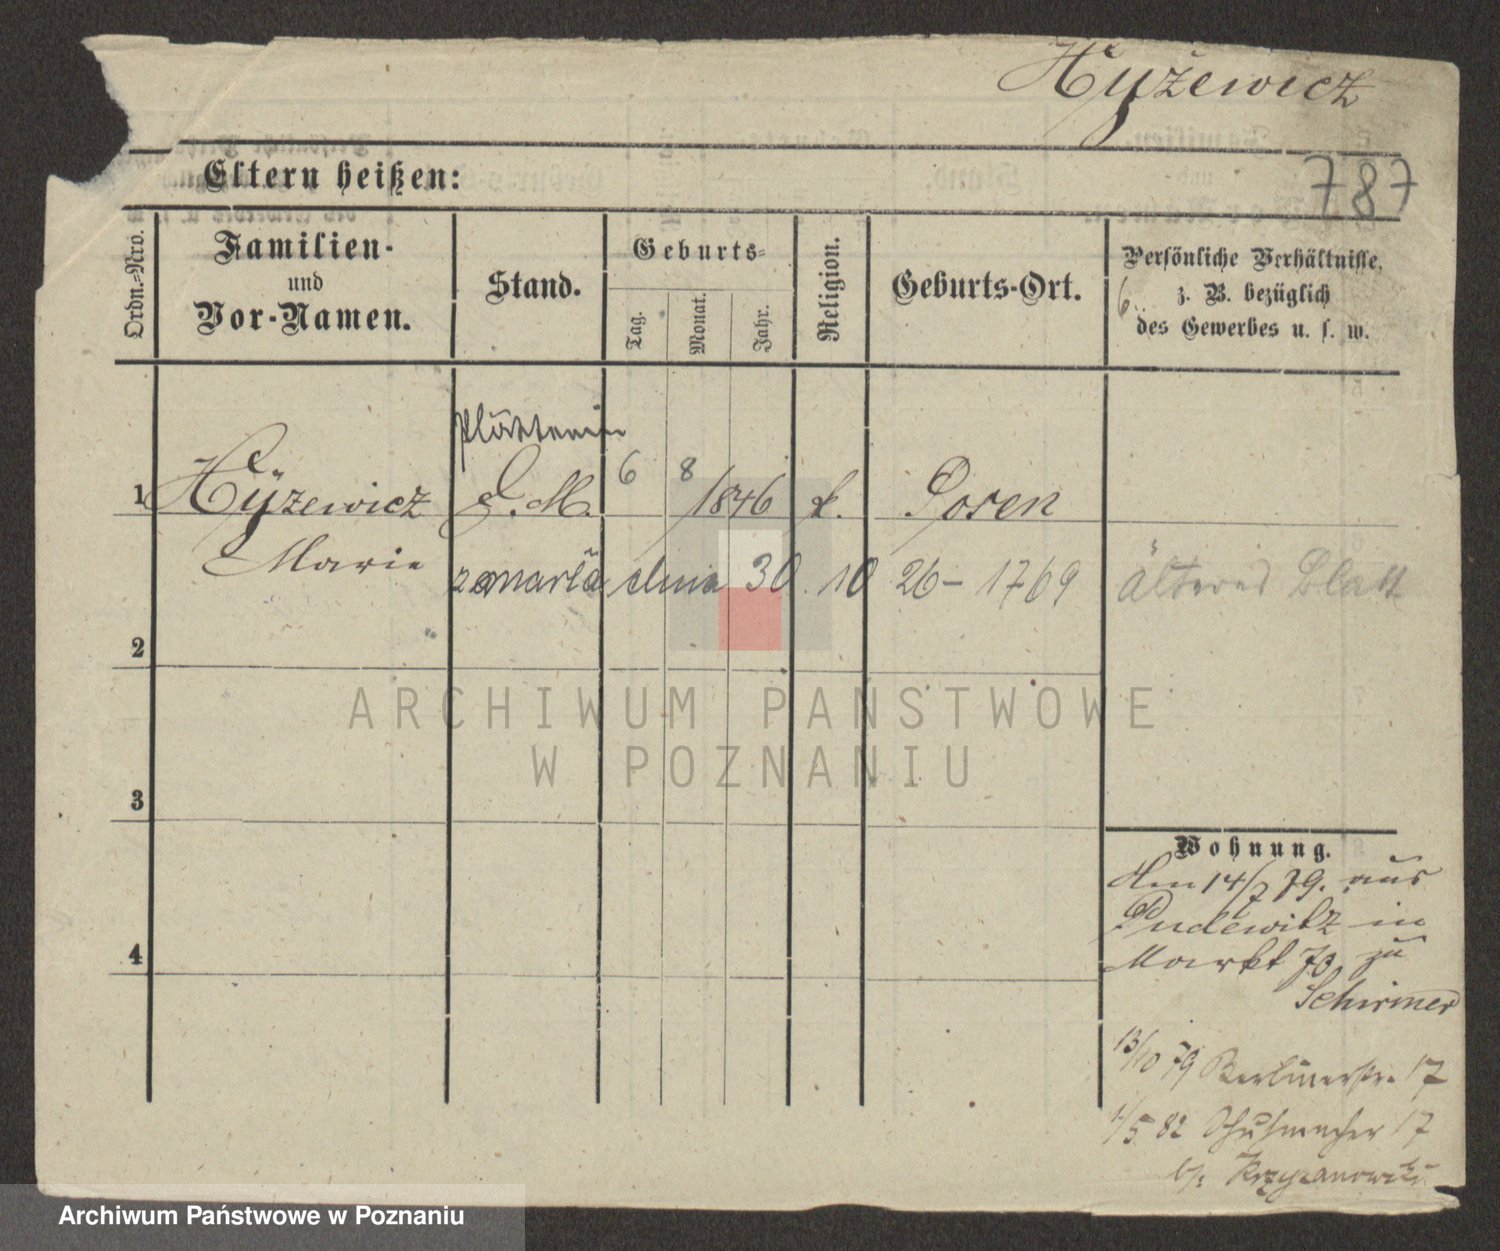 Hyżewicz
787
Eltern heißen:
Ordn.-Nro.
Familien-
und
Vor-Namen.
Stand.
Geburts-
Tag.
Monat.
Jahr.
Religion.
Geburts-Ort.
Persönliche Verhältnisse,
z. B. bezüglich
des Gewerbes u. s. w.
6.
Plätterin
1 Hÿzewicz D. M. 6 8 1846 k. Posen
Marie zmarła dnia 30. 10 26 - 1769 älteres Blatt
2
3
4
ARCHIWUM PAŃSTWOWE
W POZNANIU
Wohnung.
Am 14/7 79. aus
Pudewitz in
Markt 73 zu
Schirmer
13/10 79 Berlinerstr. 17
1/5 82 Schuhmacher 17
b/: Krzyzanowski
Archiwum Państwowe w Poznaniu